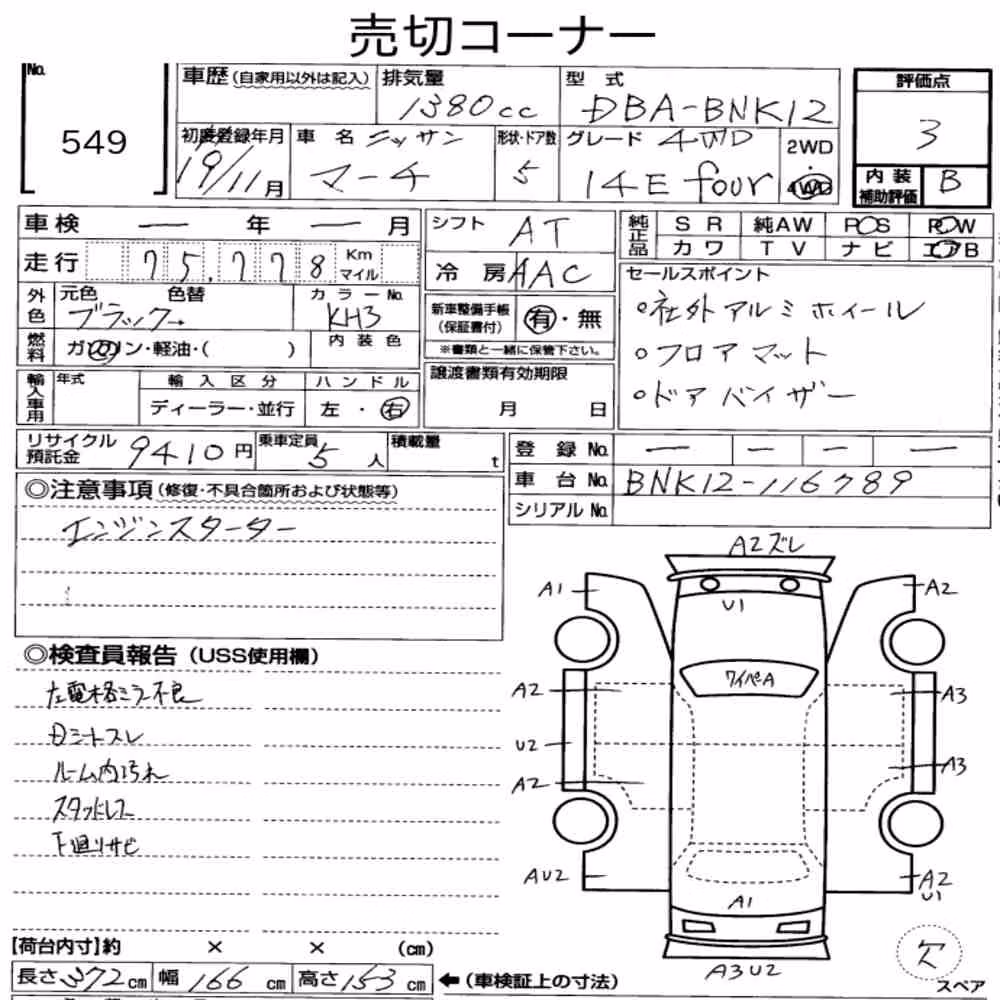 売切コーナー
No.
549
車歴(自家用以外は記入)
排気量
1380cc
型式
DBA-BNK12
評価点
3
初度登録年月
19/11月
車名 ニッサン
マーチ
形状・ドア数
5
グレード 4WD
14E four
2WD
・
4WD
内装
補助評価
B
車検 ー 年 ー 月
シフト AT
純正品
SR 純AW POS ROW
カワ TV ナビ エアB
走行 75,778 Km マイル
冷房 AAC
セールスポイント
外色
元色 色替
ブラック→
カラーNo.
KH3
新車整備手帳
(保証書付)
有・無
※書類と一緒に保管下さい。
。社外アルミホイール
。フロアマット
。ドアバイザー
燃料
ガソリン・軽油・( )
内装色
輸入車用
年式
輸入区分
ディーラー・並行
ハンドル
左・右
譲渡書類有効期限
月 日
リサイクル
預託金
9410円
乗車定員
5人
積載量
t
登録No. ー ー ー ー
車台No. BNK12-116789
シリアルNo.
◎注意事項(修復・不具合箇所および状態等)
エンジンスターター
◎検査員報告(USS使用欄)
左電格ミラー不良
Dシートスレ
ルーム内汚れ
スタッドレス
下廻りサビ
A2ズレ
U1
A1
A2
ワイペA
A2
A3
U2
A2
A3
AU2
A1
A2
U1
A3U2
欠
スペア
【荷台内寸】約 × × (cm)
長さ372cm 幅166cm 高さ153cm
←(車検証上の寸法)